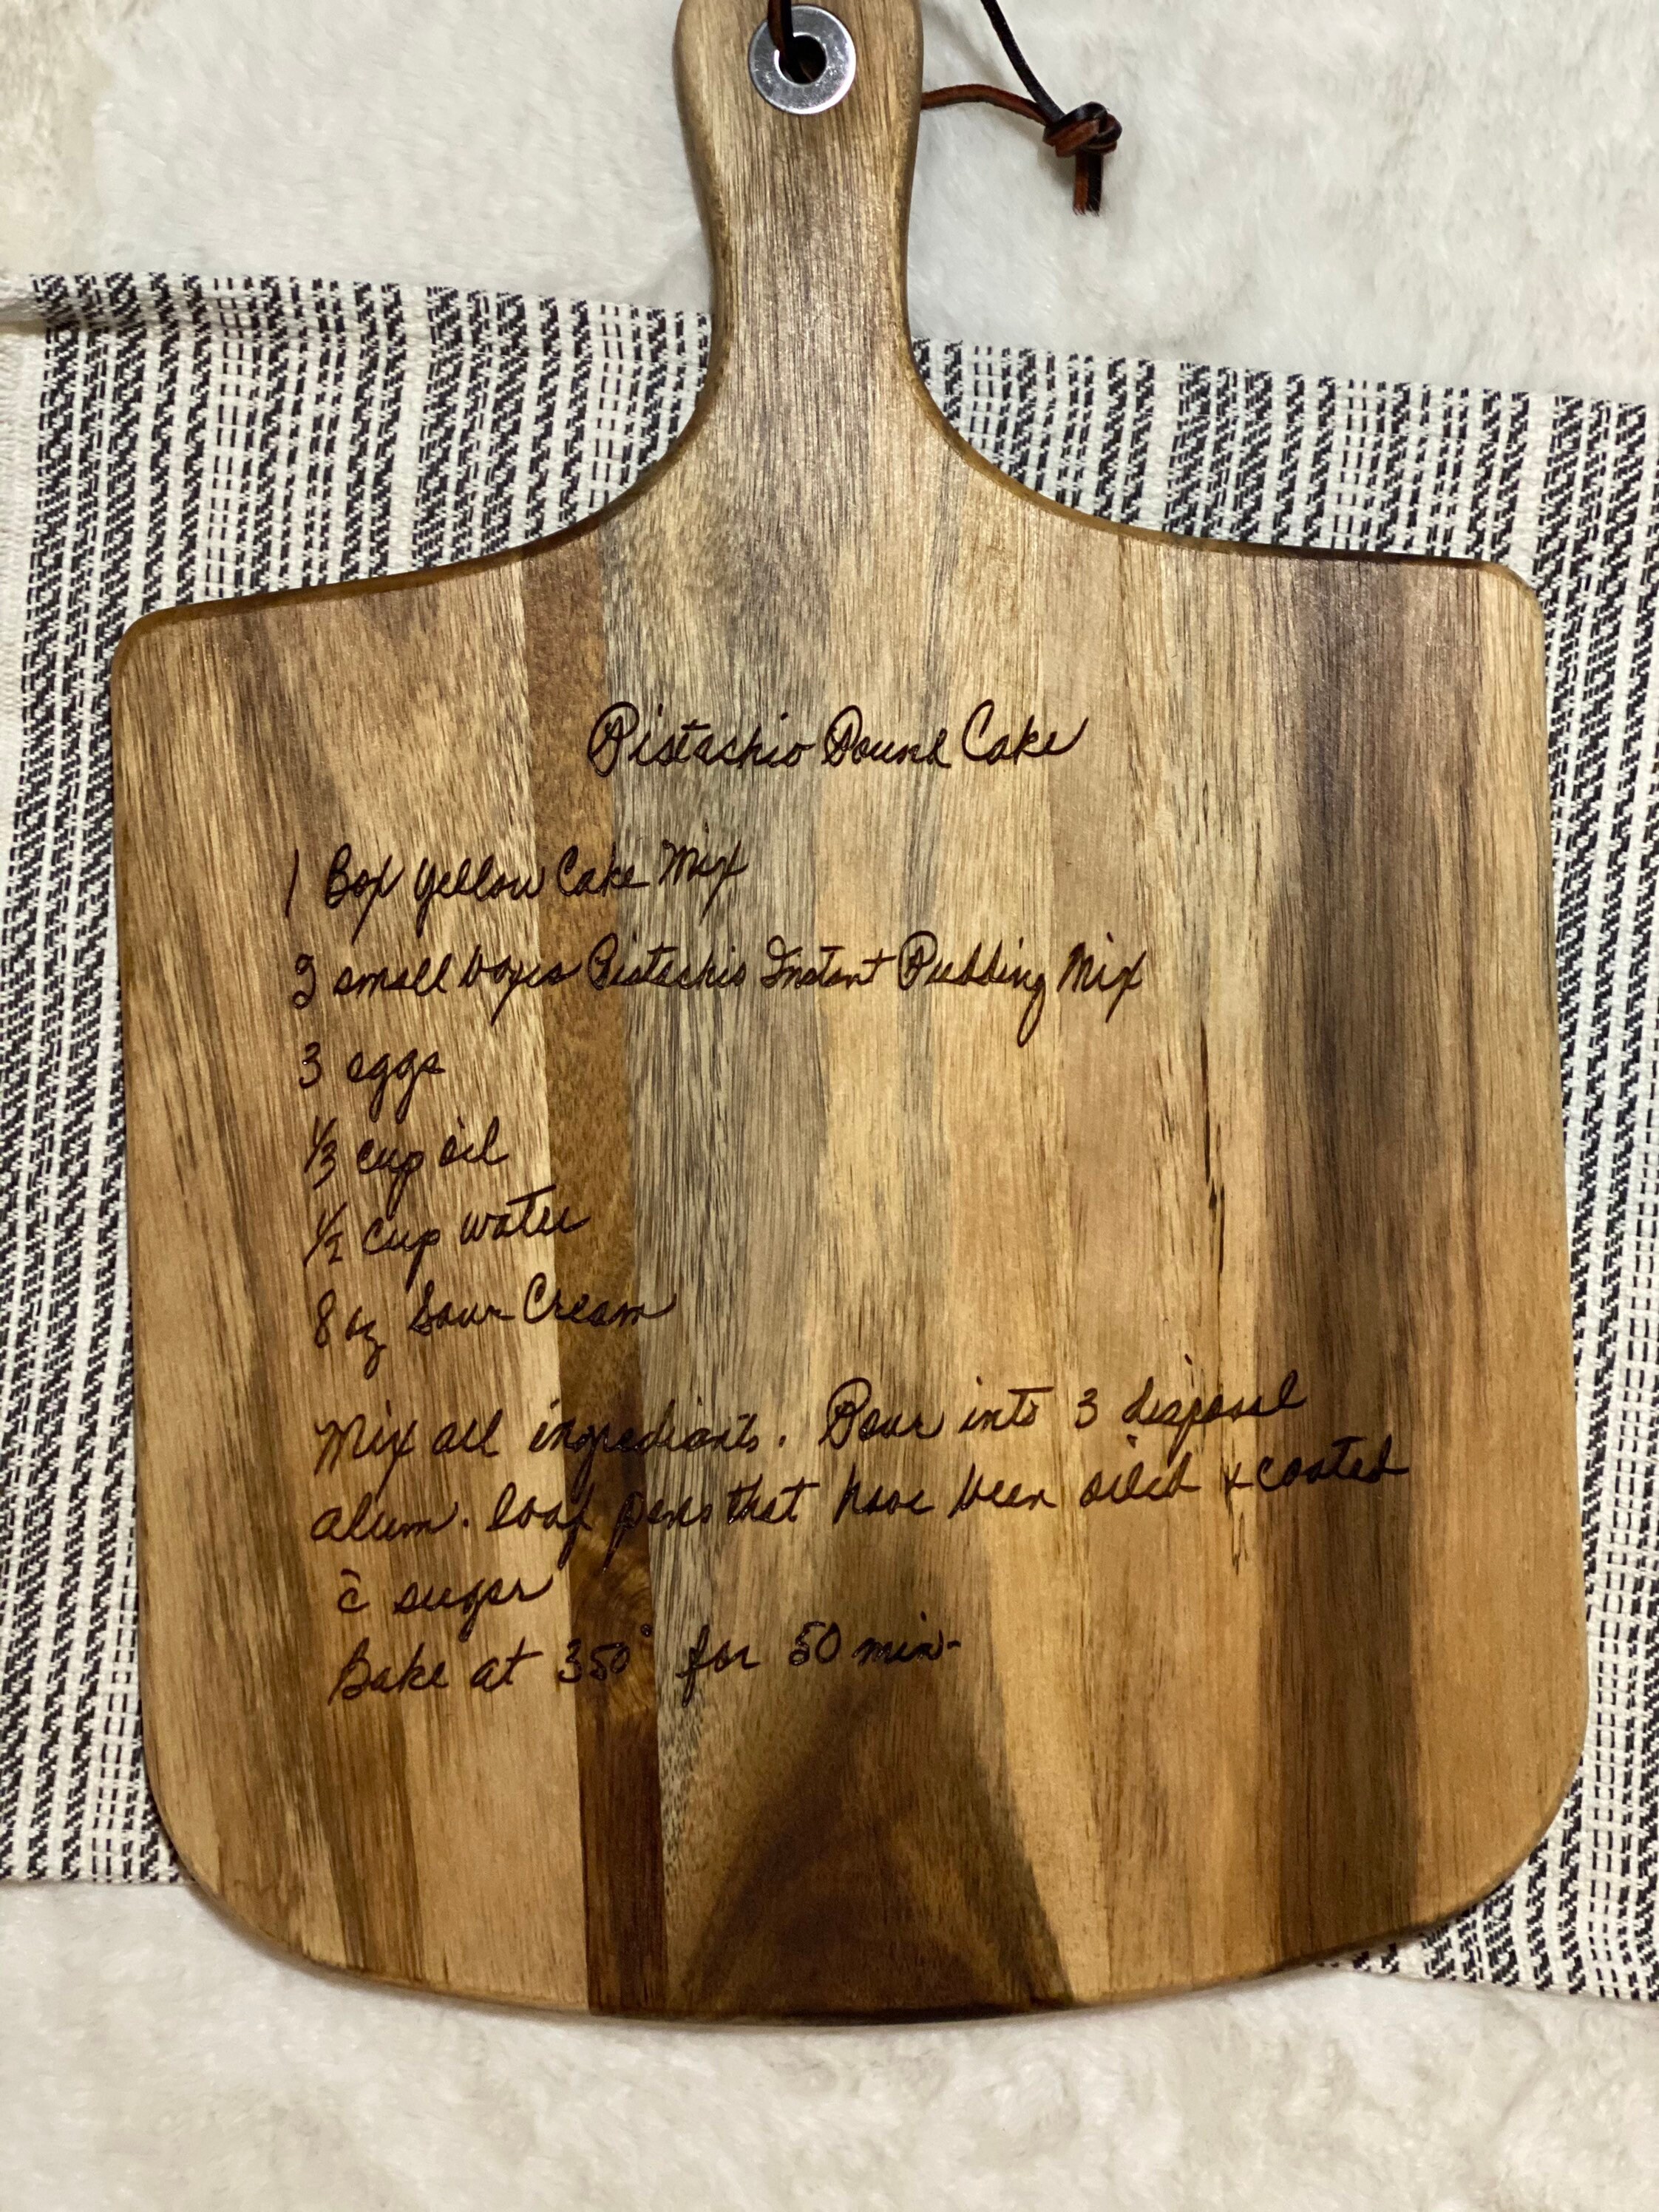 Pistachio Pound Cake
1 Box Yellow Cake Mix
2 small boxes Pistachio Instant Pudding Mix
3 eggs
1/3 cup oil
1/2 cup water
8 oz Sour Cream
Mix all ingredients. Pour into 3 disposal
alum. loaf pans that have been oiled & coated
c̄ sugar
Bake at 350° for 50 min.